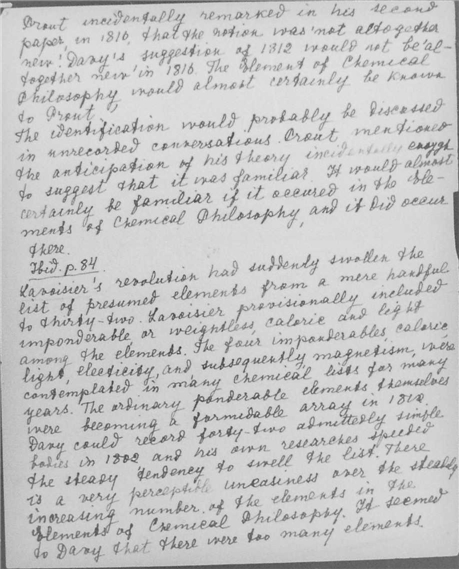 Prout incidentally remarked in his second
paper, in 1816, that the notion was 'not altogether
new'. Davy's suggestion of 1812 would not be 'al-
together new' in 1816. The Element of Chemical
Philosophy would almost certainly be known
to Prout,
The identification would probably be discussed
in unrecorded conversations. Prout mentioned
the anticipation of his theory incidentally enough
to suggest that it was familiar. It would almost
certainly be familiar if it occured in the Ele-
ments of Chemical Philosophy, and it did occur
there.
Ibid. p. 84
Lavoisier's revolution had suddenly swollen the
list of presumed elements from a mere handful
to thirty-two. Lavoisier provisionally included
imponderable or weightless, caloric and light
among the elements. The four imponderables, caloric,
light, electicity, and subsequently, magnetism, were
contemplated in many chemical lists for many
years. The ordinary ponderable elements themselves
were becoming a formidable array in 1812.
Davy could record forty-two admittedly simple
bodies in 1802 and his own researches speeded
the steady tendency to swell the list. There
is a very perceptible uneasiness over the steadily
increasing number of the elements in the
Elements of Chemical Philosophy. It seemed
to Davy that there were too many elements.